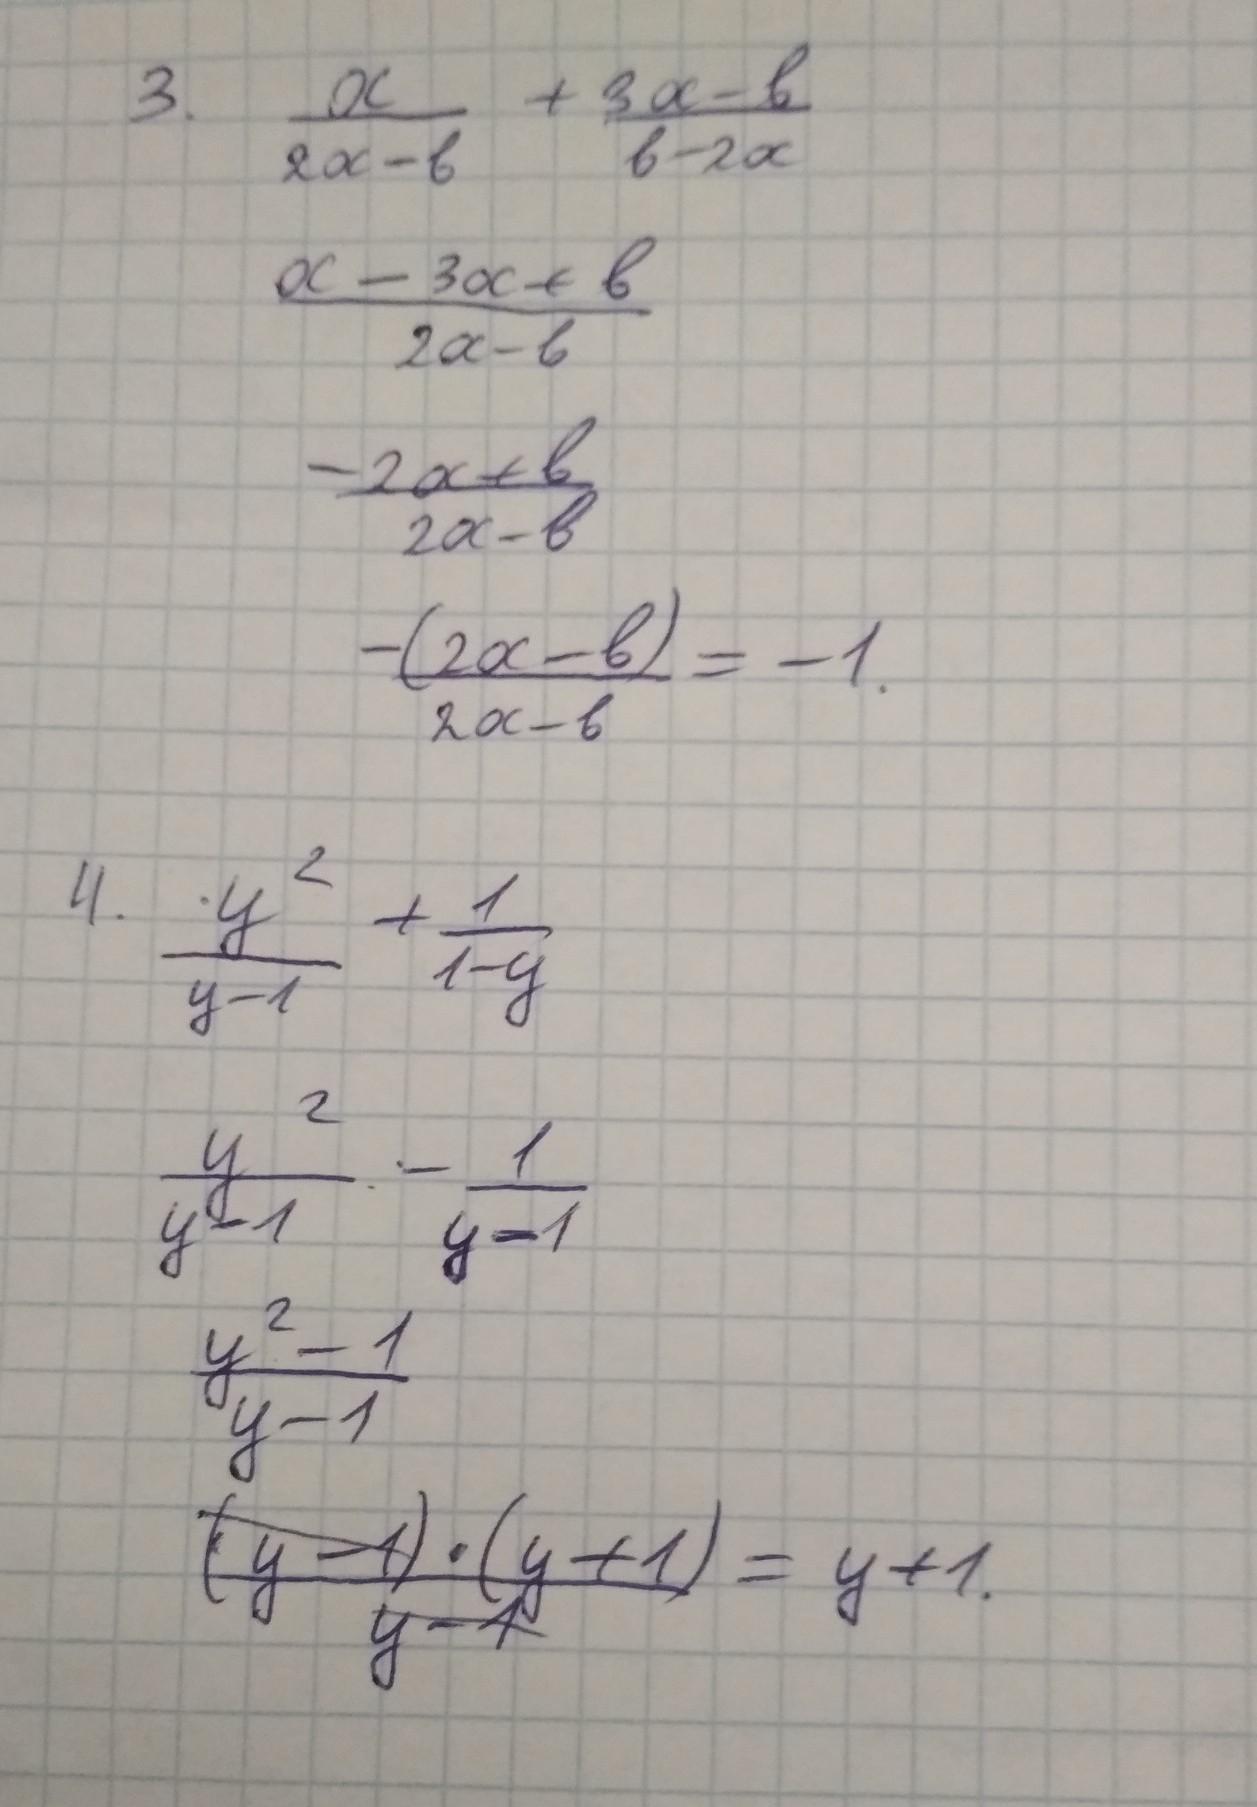 3. a/(2a-b) + (3a-b)/(b-2a)
(a-3a+b)/(2a-b)
(-2a+b)/(2a-b)
-(2a-b)/(2a-b) = -1.
4. y²/(y-1) + 1/(1-y)
y²/(y-1) - 1/(y-1)
(y²-1)/(y-1)
(y-1)·(y+1)/(y-1) = y+1.